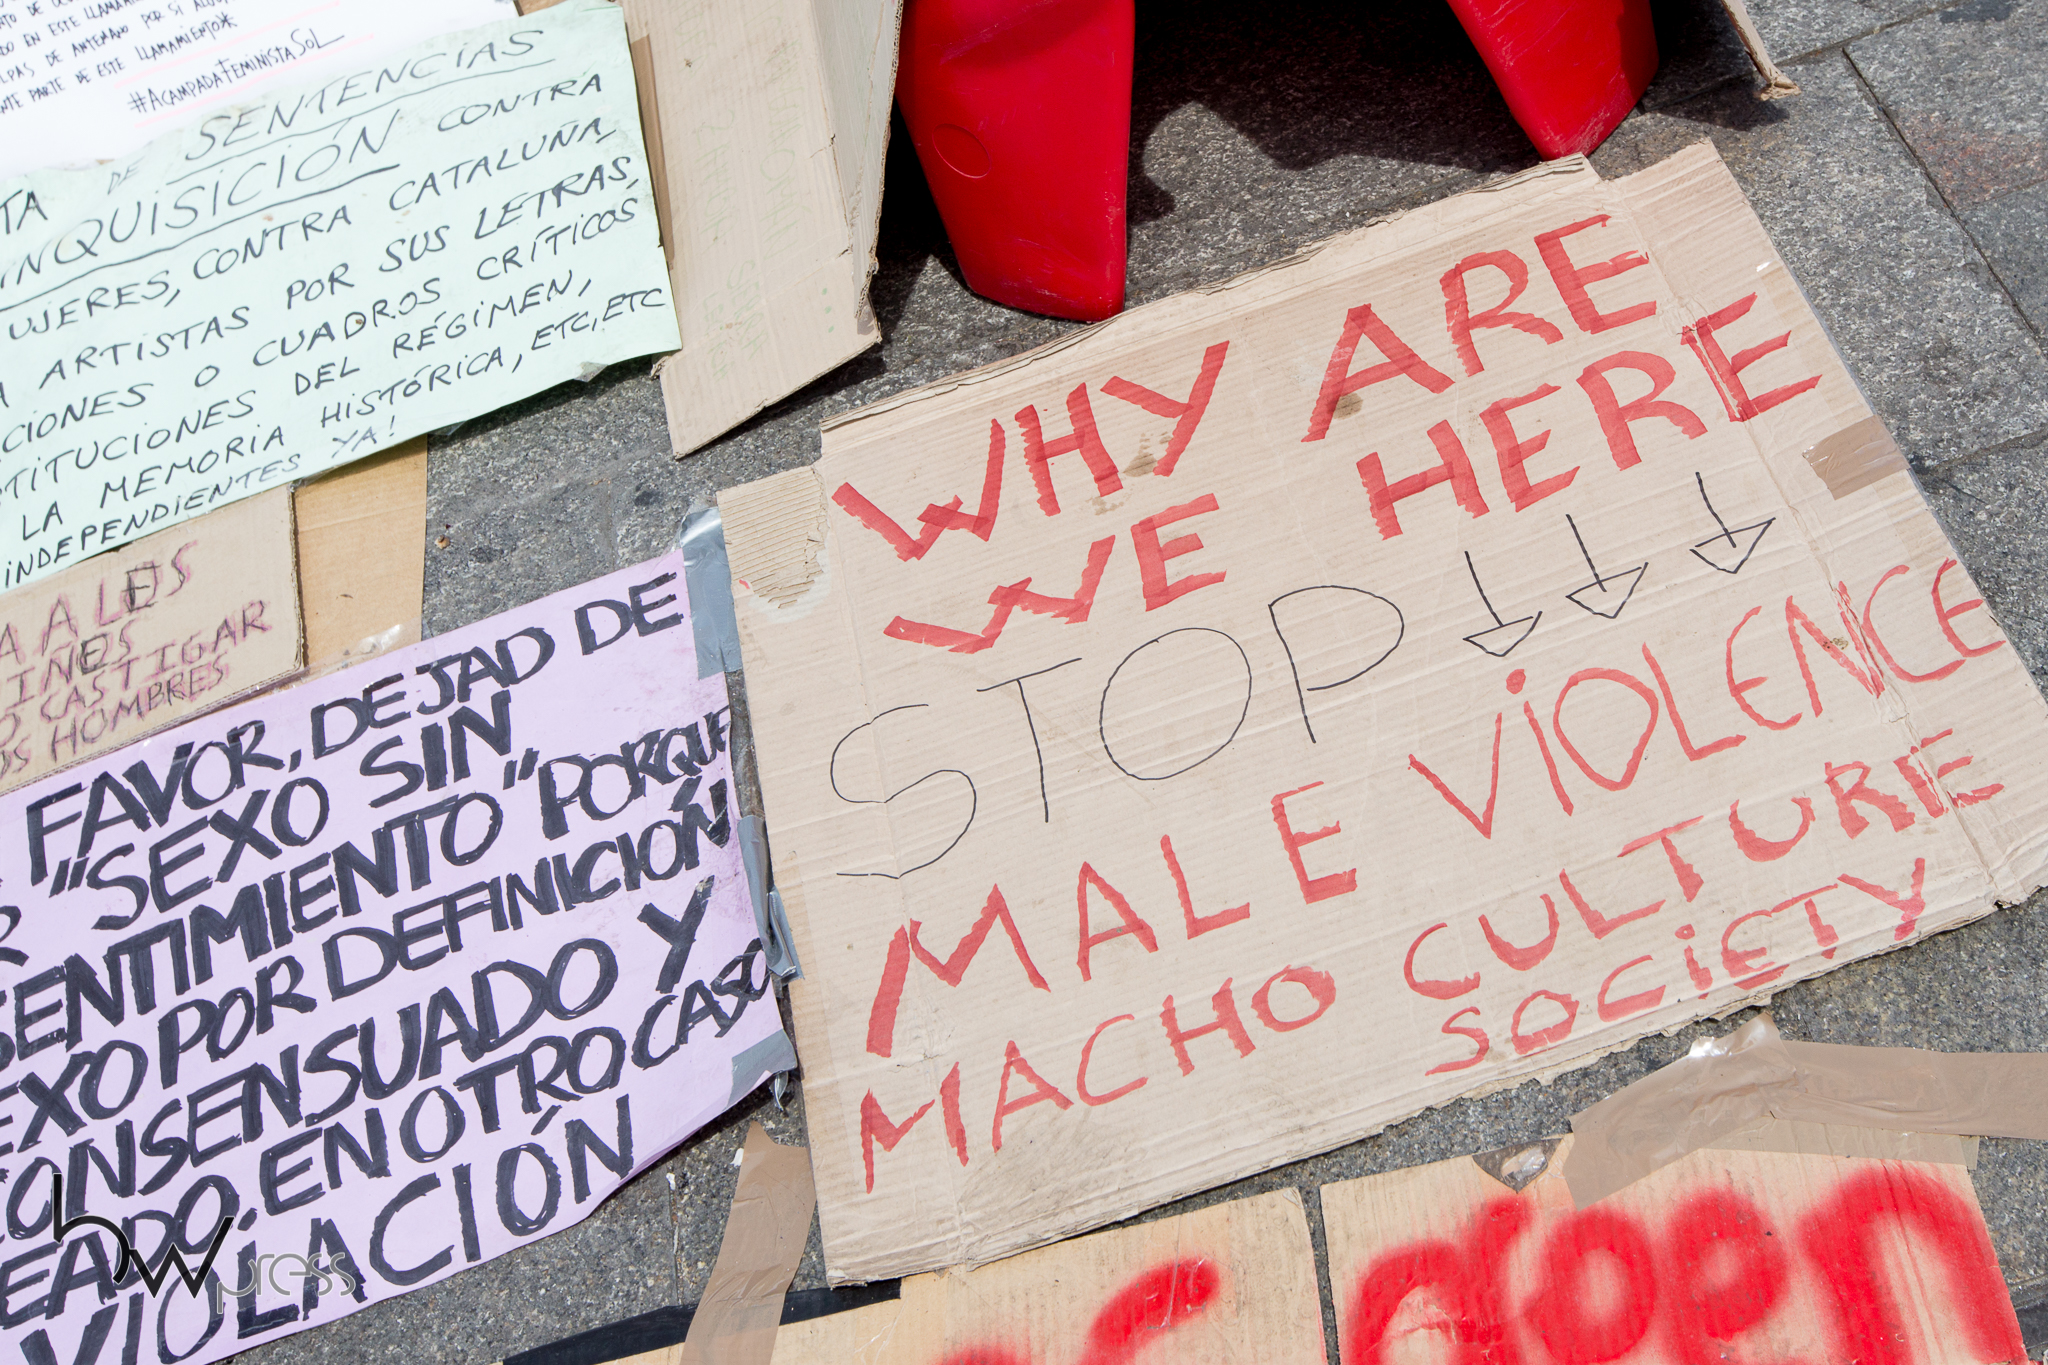 DO EN ESTE LLAMAMIENTO POR SI ALGU
LPAS DE ANTEMANO POR
NTE PARTE DE ESTE LLAMAMIENTO*
#ACAMPADAFEMINISTASOL
TA DE SENTENCIAS
INQUISICIÓN CONTRA
UJERES, CONTRA CATALUÑA,
A ARTISTAS POR SUS LETRAS,
CIONES O CUADROS CRÍTICOS
STITUCIONES DEL RÉGIMEN,
LA MEMORIA HISTÓRICA, ETC, ETC
INDEPENDIENTES YA!
A A LES
INOS
O CASTIGAR
OS HOMBRES
R FAVOR, DEJAD DE
"SEXO SIN
SENTIMIENTO" PORQUE
SEXO POR DEFINICIÓN
CONSENSUADO Y
EADO. EN OTRO CASO
VIOLACIÓN
WHY ARE
WE HERE
STOP
MALE VIOLENCE
MACHO CULTURE
SOCIETY
bw press